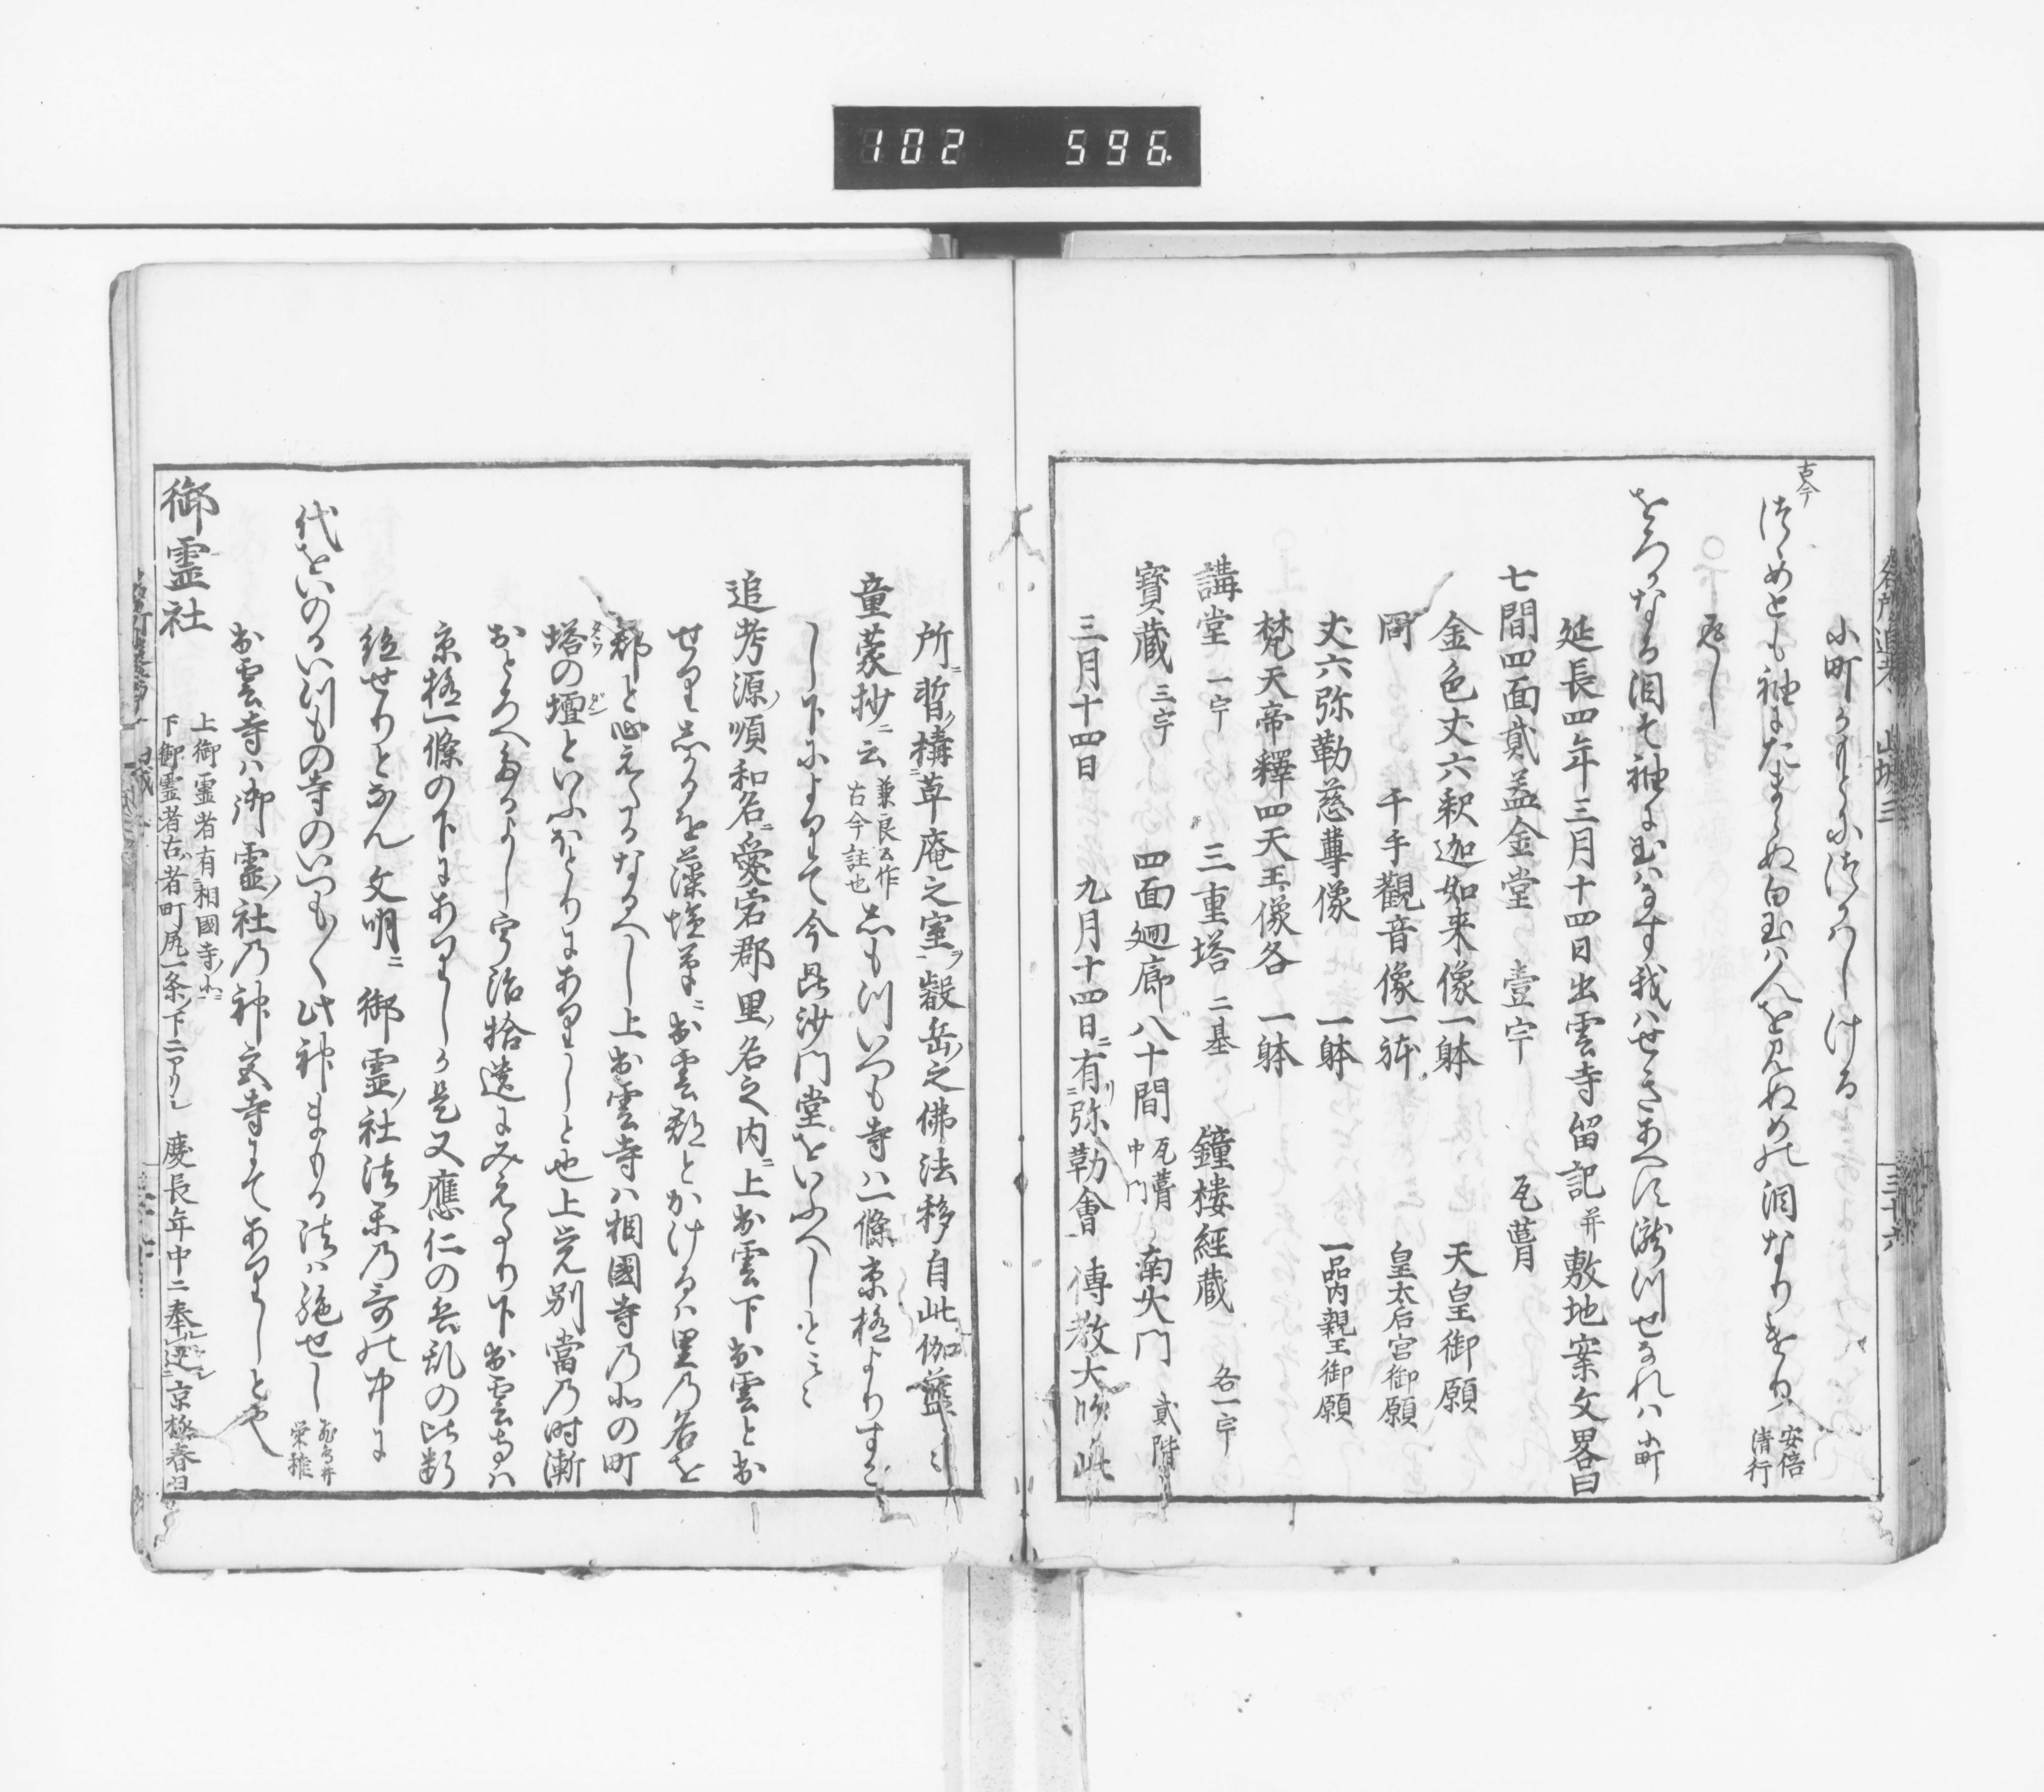 102 596
小町かもとにつかはしける
古今
つゝめとも袖にたまらぬ白玉ハ人を見ぬめの泪なりけり 安倍清行
返し
をろかなる泪そ袖に玉ハなす我ハせきあへす瀧川せなれハ 小町
延長四年三月十四日出雲寺留記并敷地案文畧曰
七間四面貳盖金堂 壹宇 瓦葺
金色丈六釈迦如来像一躰 天皇御願
同 千手觀音像一躰 皇太后宮御願
丈六弥勒慈尊像 一躰 一品内親王御願
梵天帝釋四天王像各 一躰
講堂 一宇 三重塔 二基 鐘楼経蔵 各一宇
寳蔵 三宇 四面廻廊八十間 瓦葺 中門 南大門 貳階
三月十四日 九月十四日ニ有リ弥勒會 傳教大師此
所ニ暫ク構草庵之室ヲ 叡岳之佛法移自此伽藍
童蒙抄ニ云 兼良公作 古今註也 志も川いつも寺ハ一條京極よりすこ
し下によりて今毘沙門堂をいふへしと云々
追考源ノ順和名ニ愛宕郡里ノ名之内ニ上出雲下出雲と出
せり しかるを藻塩草ニ出雲郡とかけるハ里乃名を
郡と心えたるなるへし上出雲寺ハ相國寺乃北の町
塔の壇といふほとりにありしと也上覚別當乃时漸
おとろへたるよし宇治拾遺にみえたり下出雲寺ハ
京極一條の下にありしか是又應仁の兵乱の比断
絶せりとなん 文明ニ 御霊ノ社法楽乃哥の中に
代をいのるいつもの寺のいつも〳〵此神まもる法ハ絶せし 飛鳥井 栄雅
出雲寺ハ御霊ノ社乃神宮寺にてありしとや
御霊社 上御霊者有相國寺ノ北ニ 下御霊者古ハ者町尻一条ノ下ニアリシ 慶長年中ニ奉迁京極春日